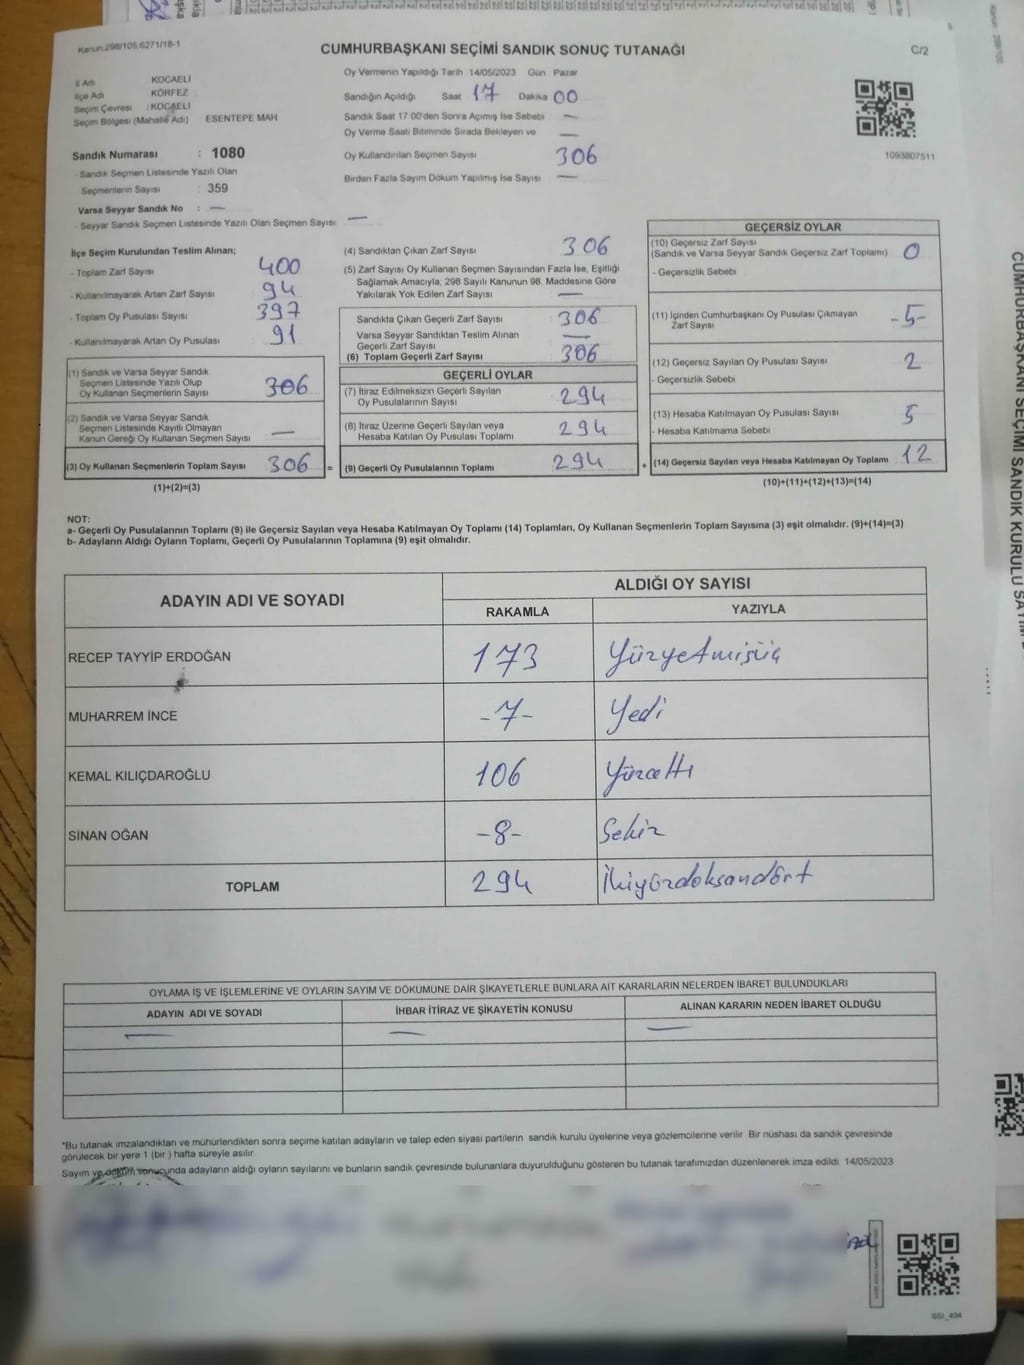 Kanun.298/105,6271/18-1
CUMHURBAŞKANI SEÇİMİ SANDIK SONUÇ TUTANAĞI
C/2
İl Adı KOCAELİ
İlçe Adı KÖRFEZ
Seçim Çevresi : KOCAELİ
Seçim Bölgesi (Mahalle Adı) ESENTEPE MAH.
Oy Vermenin Yapıldığı Tarih 14/05/2023 Gün Pazar
Sandığın Açıldığı Saat 17 Dakika 00
Sandık Saat 17:00'den Sonra Açılmış İse Sebebi : —
Oy Verme Saati Bitiminde Sırada Bekleyen ve —
Oy Kullandırılan Seçmen Sayısı 306
Birden Fazla Sayım Döküm Yapılmış İse Sayısı : —
1093807511
Sandık Numarası : 1080
- Sandık Seçmen Listesinde Yazılı Olan
Seçmenlerin Sayısı : 359
Varsa Seyyar Sandık No : —
- Seyyar Sandık Seçmen Listesinde Yazılı Olan Seçmen Sayısı : —
İlçe Seçim Kurulundan Teslim Alınan;
- Toplam Zarf Sayısı 400
- Kullanılmayarak Artan Zarf Sayısı 94
- Toplam Oy Pusulası Sayısı 397
- Kullanılmayarak Artan Oy Pusulası 91
(1) Sandık ve Varsa Seyyar Sandık
Seçmen Listesinde Yazılı Olup
Oy Kullanan Seçmenlerin Sayısı 306
(2) Sandık ve Varsa Seyyar Sandık
Seçmen Listesinde Kayıtlı Olmayan
Kanun Gereği Oy Kullanan Seçmen Sayısı : —
(3) Oy Kullanan Seçmenlerin Toplam Sayısı 306 =
(1)+(2)=(3)
(4) Sandıktan Çıkan Zarf Sayısı 306
(5) Zarf Sayısı Oy Kullanan Seçmen Sayısından Fazla İse, Eşitliği
Sağlamak Amacıyla, 298 Sayılı Kanunun 98. Maddesine Göre
Yakılarak Yok Edilen Zarf Sayısı : —
Sandıkta Çıkan Geçerli Zarf Sayısı : 306
Varsa Seyyar Sandıktan Teslim Alınan
Geçerli Zarf Sayısı : —
(6) Toplam Geçerli Zarf Sayısı : 306
GEÇERLİ OYLAR
(7) İtiraz Edilmeksizin Geçerli Sayılan
Oy Pusulalarının Sayısı : 294
(8) İtiraz Üzerine Geçerli Sayılan veya
Hesaba Katılan Oy Pusulası Toplamı : 294
(9) Geçerli Oy Pusulalarının Toplamı : 294 +
GEÇERSİZ OYLAR
(10) Geçersiz Zarf Sayısı
(Sandık ve Varsa Seyyar Sandık Geçersiz Zarf Toplamı) : 0
- Geçersizlik Sebebi
(11) İçinden Cumhurbaşkanı Oy Pusulası Çıkmayan
Zarf Sayısı : -5-
(12) Geçersiz Sayılan Oy Pusulası Sayısı : 2
- Geçersizlik Sebebi
(13) Hesaba Katılmayan Oy Pusulası Sayısı : 5
- Hesaba Katılmama Sebebi
(14) Geçersiz Sayılan veya Hesaba Katılmayan Oy Toplamı : 12
(10)+(11)+(12)+(13)=(14)
NOT:
a- Geçerli Oy Pusulalarının Toplamı (9) ile Geçersiz Sayılan veya Hesaba Katılmayan Oy Toplamı (14) Toplamları, Oy Kullanan Seçmenlerin Toplam Sayısına (3) eşit olmalıdır. (9)+(14)=(3)
b- Adayların Aldığı Oyların Toplamı, Geçerli Oy Pusulalarının Toplamına (9) eşit olmalıdır.
ADAYIN ADI VE SOYADI
ALDIĞI OY SAYISI
RAKAMLA YAZIYLA
RECEP TAYYİP ERDOĞAN 173 Yüzyetmişüç
MUHARREM İNCE -7- Yedi
KEMAL KILIÇDAROĞLU 106 Yüzaltı
SİNAN OĞAN -8- Sekiz
TOPLAM 294 İkiyüzdoksandört
OYLAMA İŞ VE İŞLEMLERİNE VE OYLARIN SAYIM VE DÖKÜMÜNE DAİR ŞİKAYETLERLE BUNLARA AİT KARARLARIN NELERDEN İBARET BULUNDUKLARI
ADAYIN ADI VE SOYADI İHBAR İTİRAZ VE ŞİKAYETİN KONUSU ALINAN KARARIN NEDEN İBARET OLDUĞU
— — —
*Bu tutanak imzalandıktan ve mühürlendikten sonra seçime katılan adayların ve talep eden siyasi partilerin sandık kurulu üyelerine veya gözlemcilerine verilir. Bir nüshası da sandık çevresinde
görülecek bir yere 1 (bir ) hafta süreyle asılır.
Sayım ve döküm sonucunda adayların aldığı oyların sayılarını ve bunların sandık çevresinde bulunanlara duyurulduğunu gösteren bu tutanak tarafımızdan düzenlenerek imza edildi 14/05/2023